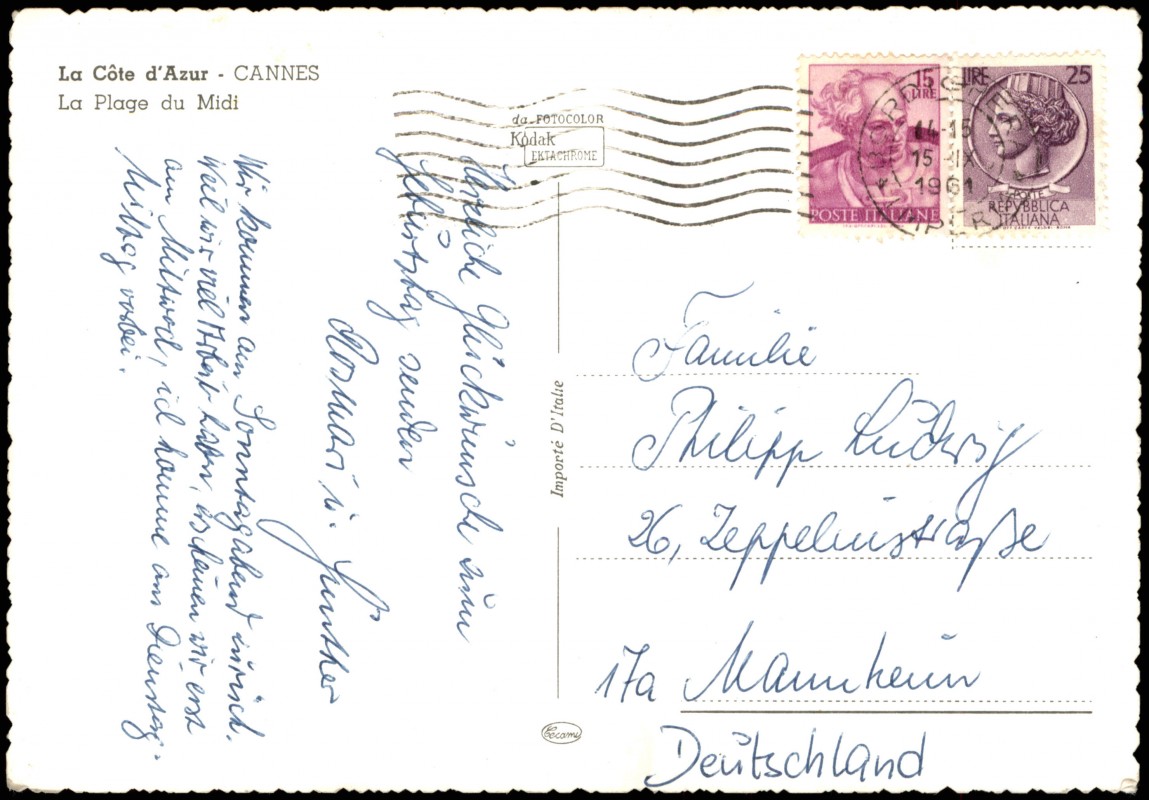 La Côte d'Azur - CANNES
La Plage du Midi
da FOTOCOLOR
Kodak
EKTACHROME
15
LIRE
POSTE ITALIANE
LIRE 25
POSTE
REPVBBLICA
ITALIANA
14-15
15 IX
1961
Herzliche Glückwünsche zum
Geburtstag senden
Rosmari u. Günther
Wir kommen am Sonntagabend zurück.
Weil wir viel Arbeit haben, erscheinen wir erst
am Mittwoch, ich komme am Dienstag-
Mittag vorbei.
Importé D'Italie
Cecami
Familie
Philipp Ludwig
26, Zeppelinstraße
17a Mannheim
Deutschland